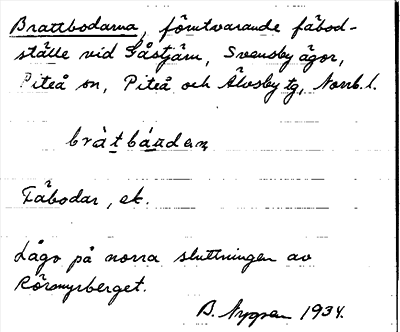 Brattbodarna, förutvarande fäbod-
ställe vid Gåstjärn, Svensby ägor,
Piteå sn, Piteå och Älvsby tg, Norrb. l.
Fäbodar, ek.
Lågo på norra sluttningen av
Rörmyrberget.
B. Nygren 1934.